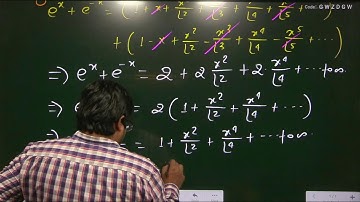 Code: G W Z D G W
e^x + e^-x = (1 + x + x²/⌊2 + x³/⌊3 + x⁴/⌊4 + x⁵/⌊5 + ...
+ (1 - x + x²/⌊2 - x³/⌊3 + x⁴/⌊4 - x⁵/⌊5 + ...
⇒ e^x + e^-x = 2 + 2 x²/⌊2 + 2 x⁴/⌊4 + ... to ∞
⇒ = 2 (1 + x²/⌊2 + x⁴/⌊4 + ...)
= 1 + x²/⌊2 + x⁴/⌊4 + ... to ∞